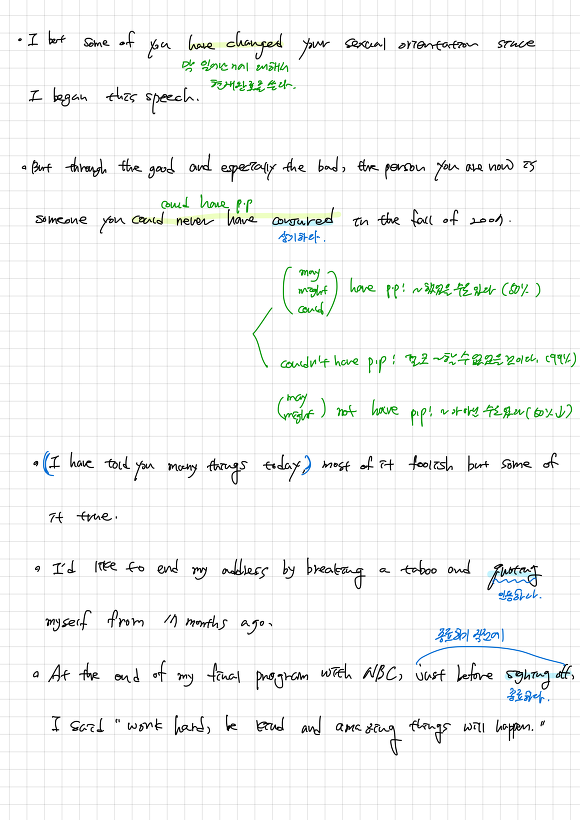 • I bet some of you have changed your sexual orientation since
막 일어난 일에 대해서
현재완료를 쓴다.
I began this speech.
• But through the good and especially the bad, the person you are now is
could have p.p
someone you could never have conjured in the fall of 2009.
상기하다.
may
might have p.p: ~했었을 수도 있다 (50%)
could
couldn't have p.p: 결코 ~할 수 없었을 것이다. (99%)
may
might not have p.p: ~아니었을 수도 있다 (50%↓)
• (I have told you many things today) most of it foolish but some of
it true.
• I'd like to end my address by breaking a taboo and quoting
인용하다.
myself from 17 months ago.
종료하기 직전에
• At the end of my final program with NBC, just before signing off,
종료하다.
I said "work hard, be kind and amazing things will happen."